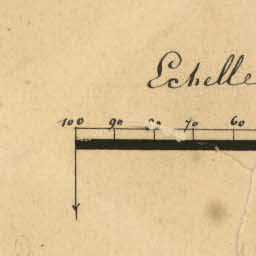 Echelle
100 90 80 70 60